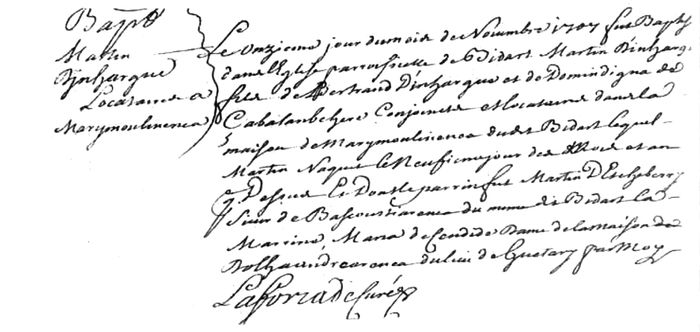 Bapt
Martin
D'inhargue
Locataire a
Marymoulinenea
Le onzieme jour du mois de Novembre 1707 fut Baptisé
dans l'Eglise parroissielle de Bidart Martin D'inhargue
fils de Bertrand D'inhargue et de Domindigna de
Cabalanbehere Conjoints et locataires dans la
maison de Marymoulinenea du dit Bidart lequel
Martin Naquit le Neufieme jour des Mois et an
que Dessus Et Dont le parrin fut Martin D'Etcheberry
Sieur de Bascoustiarenea du meme Bidart la
Marrine, Maria de Dame de la maison de
du lieu de Guetary par Moy
Curé